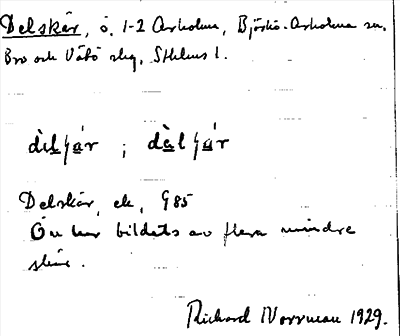 Delskär, ö. 1-2 Arholma, Björkö-Arholma sn,
Bro och Vätö slg, Sthlms l.
Delskär, ek. G 85
Ön har bildats av flera mindre
skär.
Richard Norrman 1929.